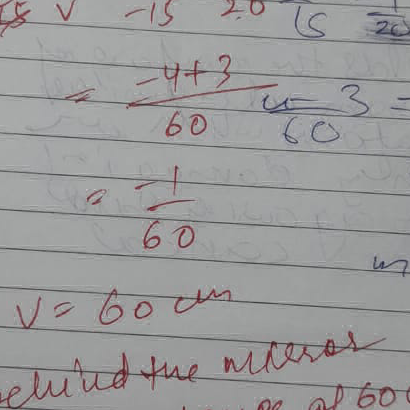 V -15 20 15 1/20
= -4+3/60 4-3/60 =
= -1/60
V = 60 cm
behind the mirror
of 60